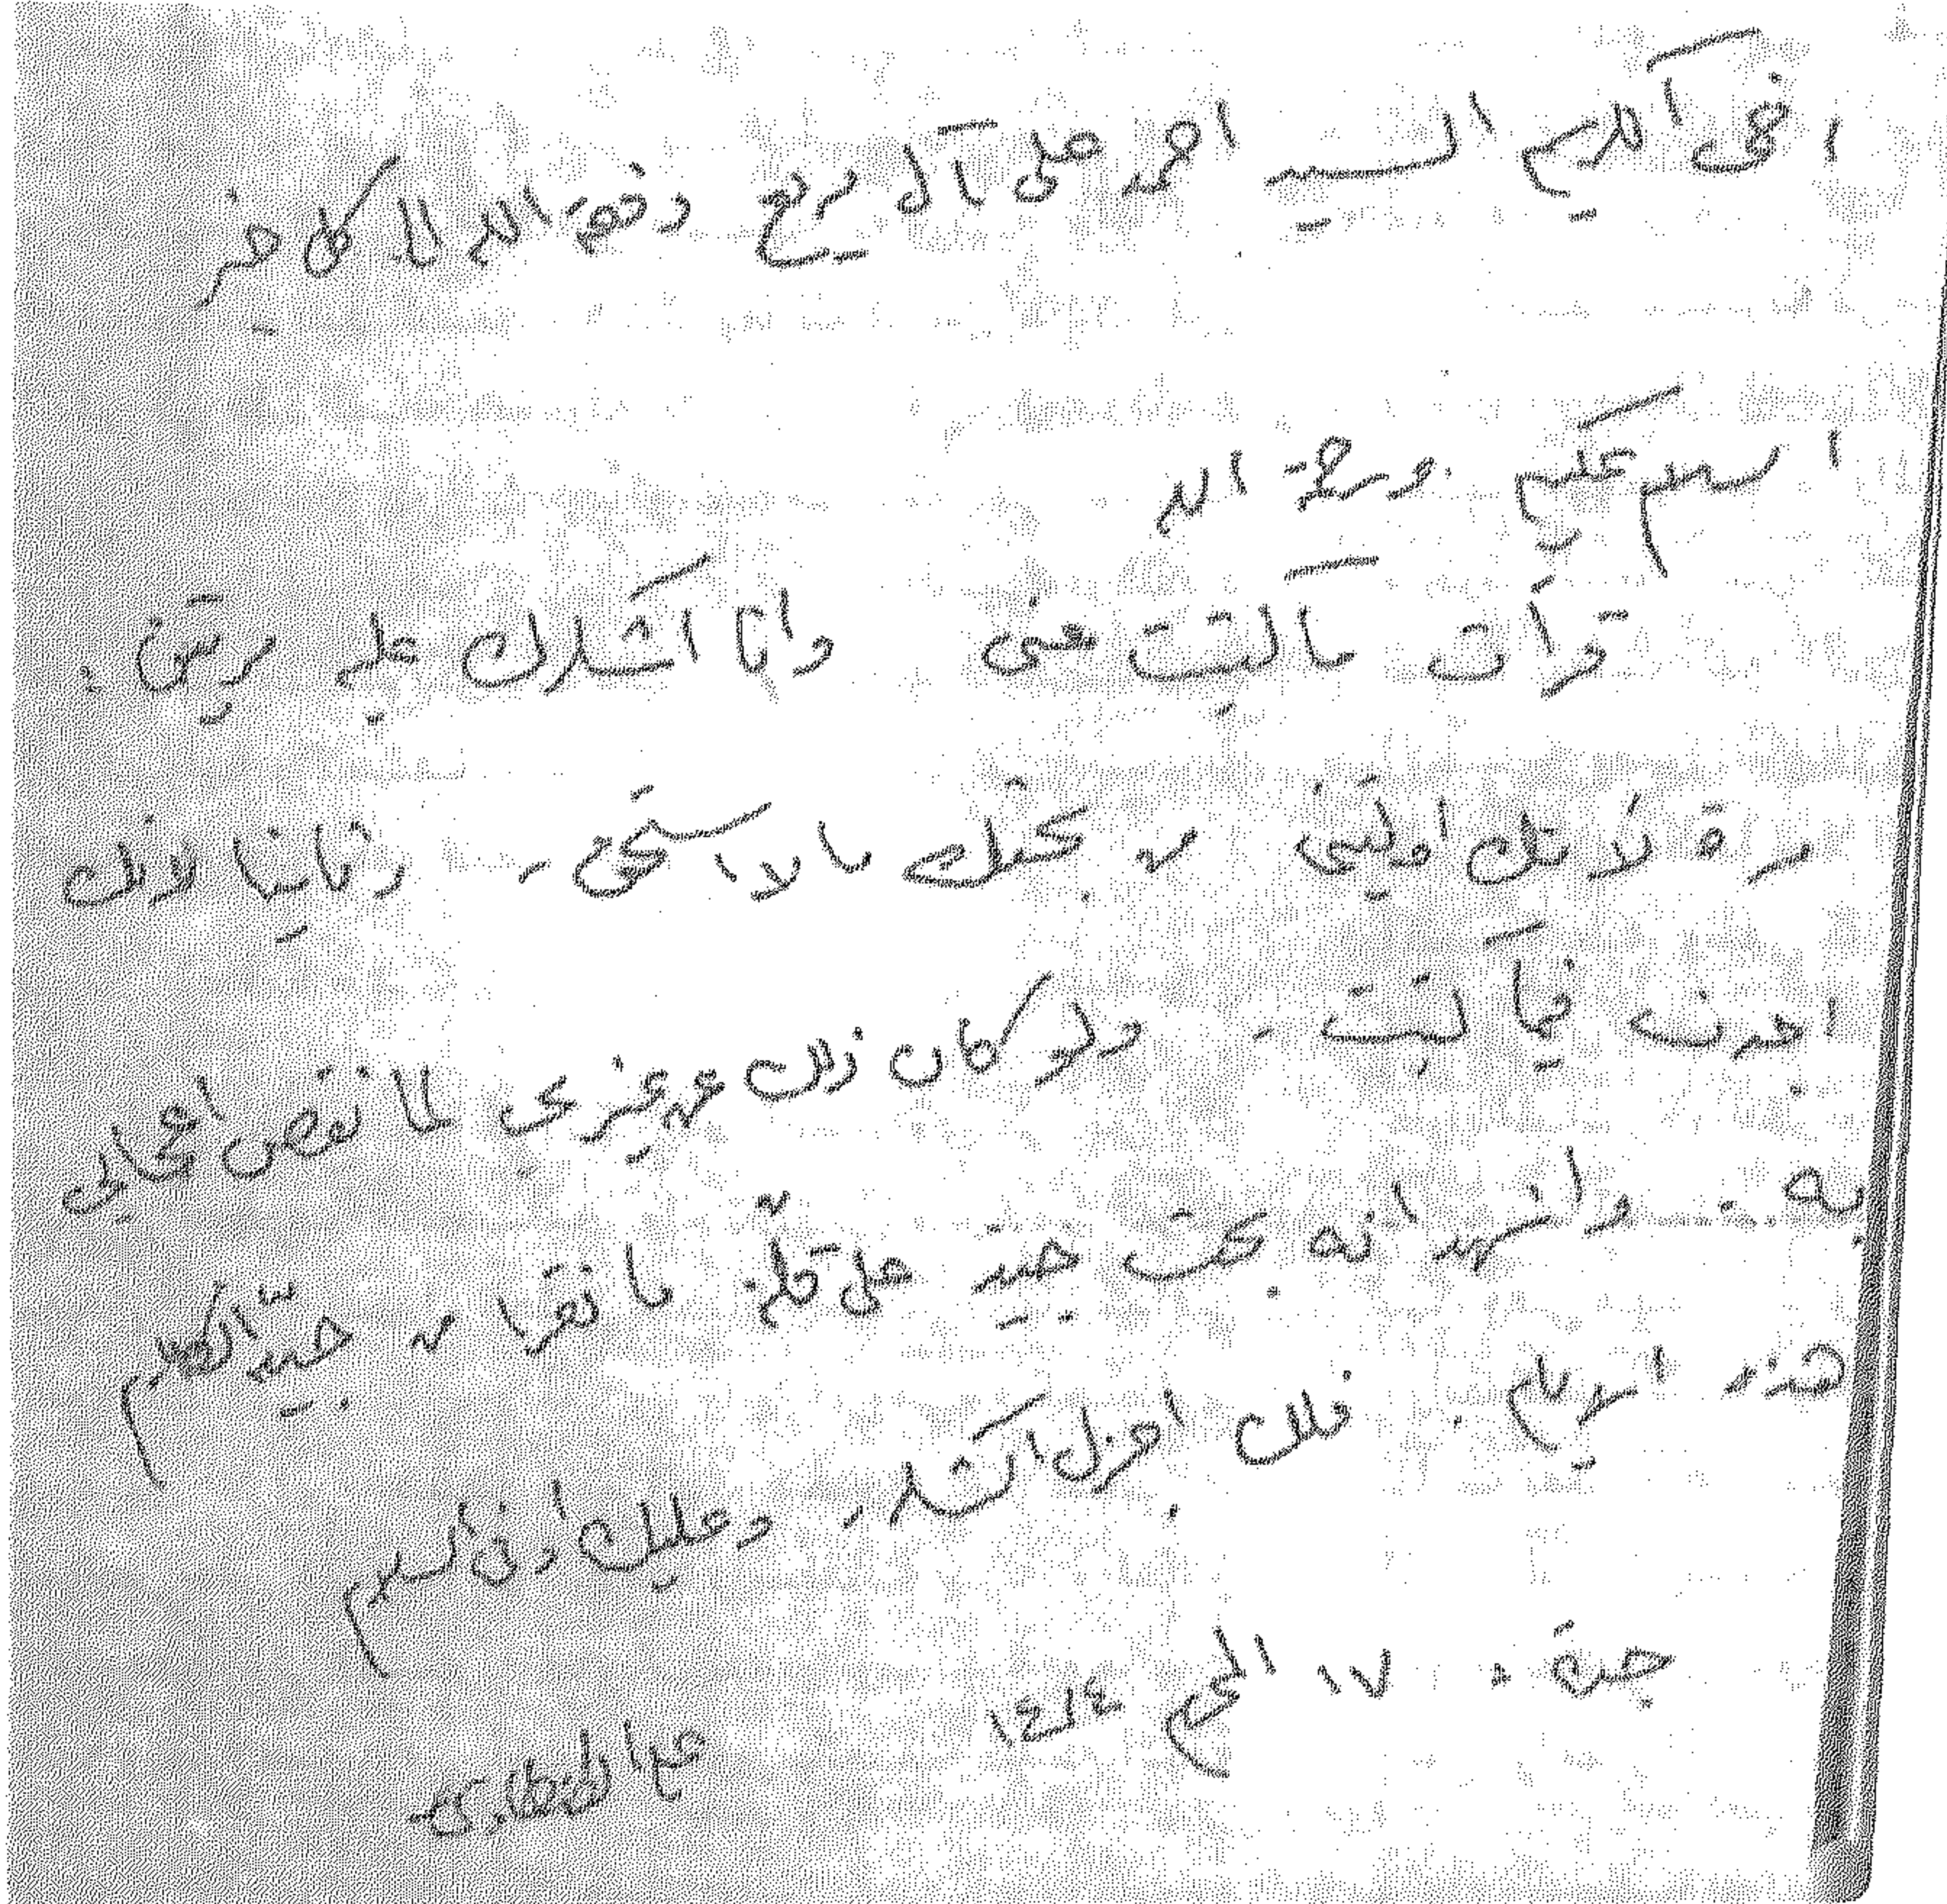 اخى الكريم السيد احمد على آل مريع وفقه الله الى كل خير
السلام عليكم ورحمة الله
قرأت ما كتبت عنى وانا اشكرك عليه مرتين :
مرة لأنك اوليتنى من بحثك مالا استحق - وثانيا لأنك
اجدت فيما كتبت - ولو كان ذلك عن غيرى لما نقص اعجابى
به . واشهد انه بحث جيد على قلة ما نقرأ من جيد الكلام
هذه الايام . فلك اجزل الشكر ، وعليك أوفى السلام
جدة : ١٧ المحرم ١٤١٤
على الطنطاوى